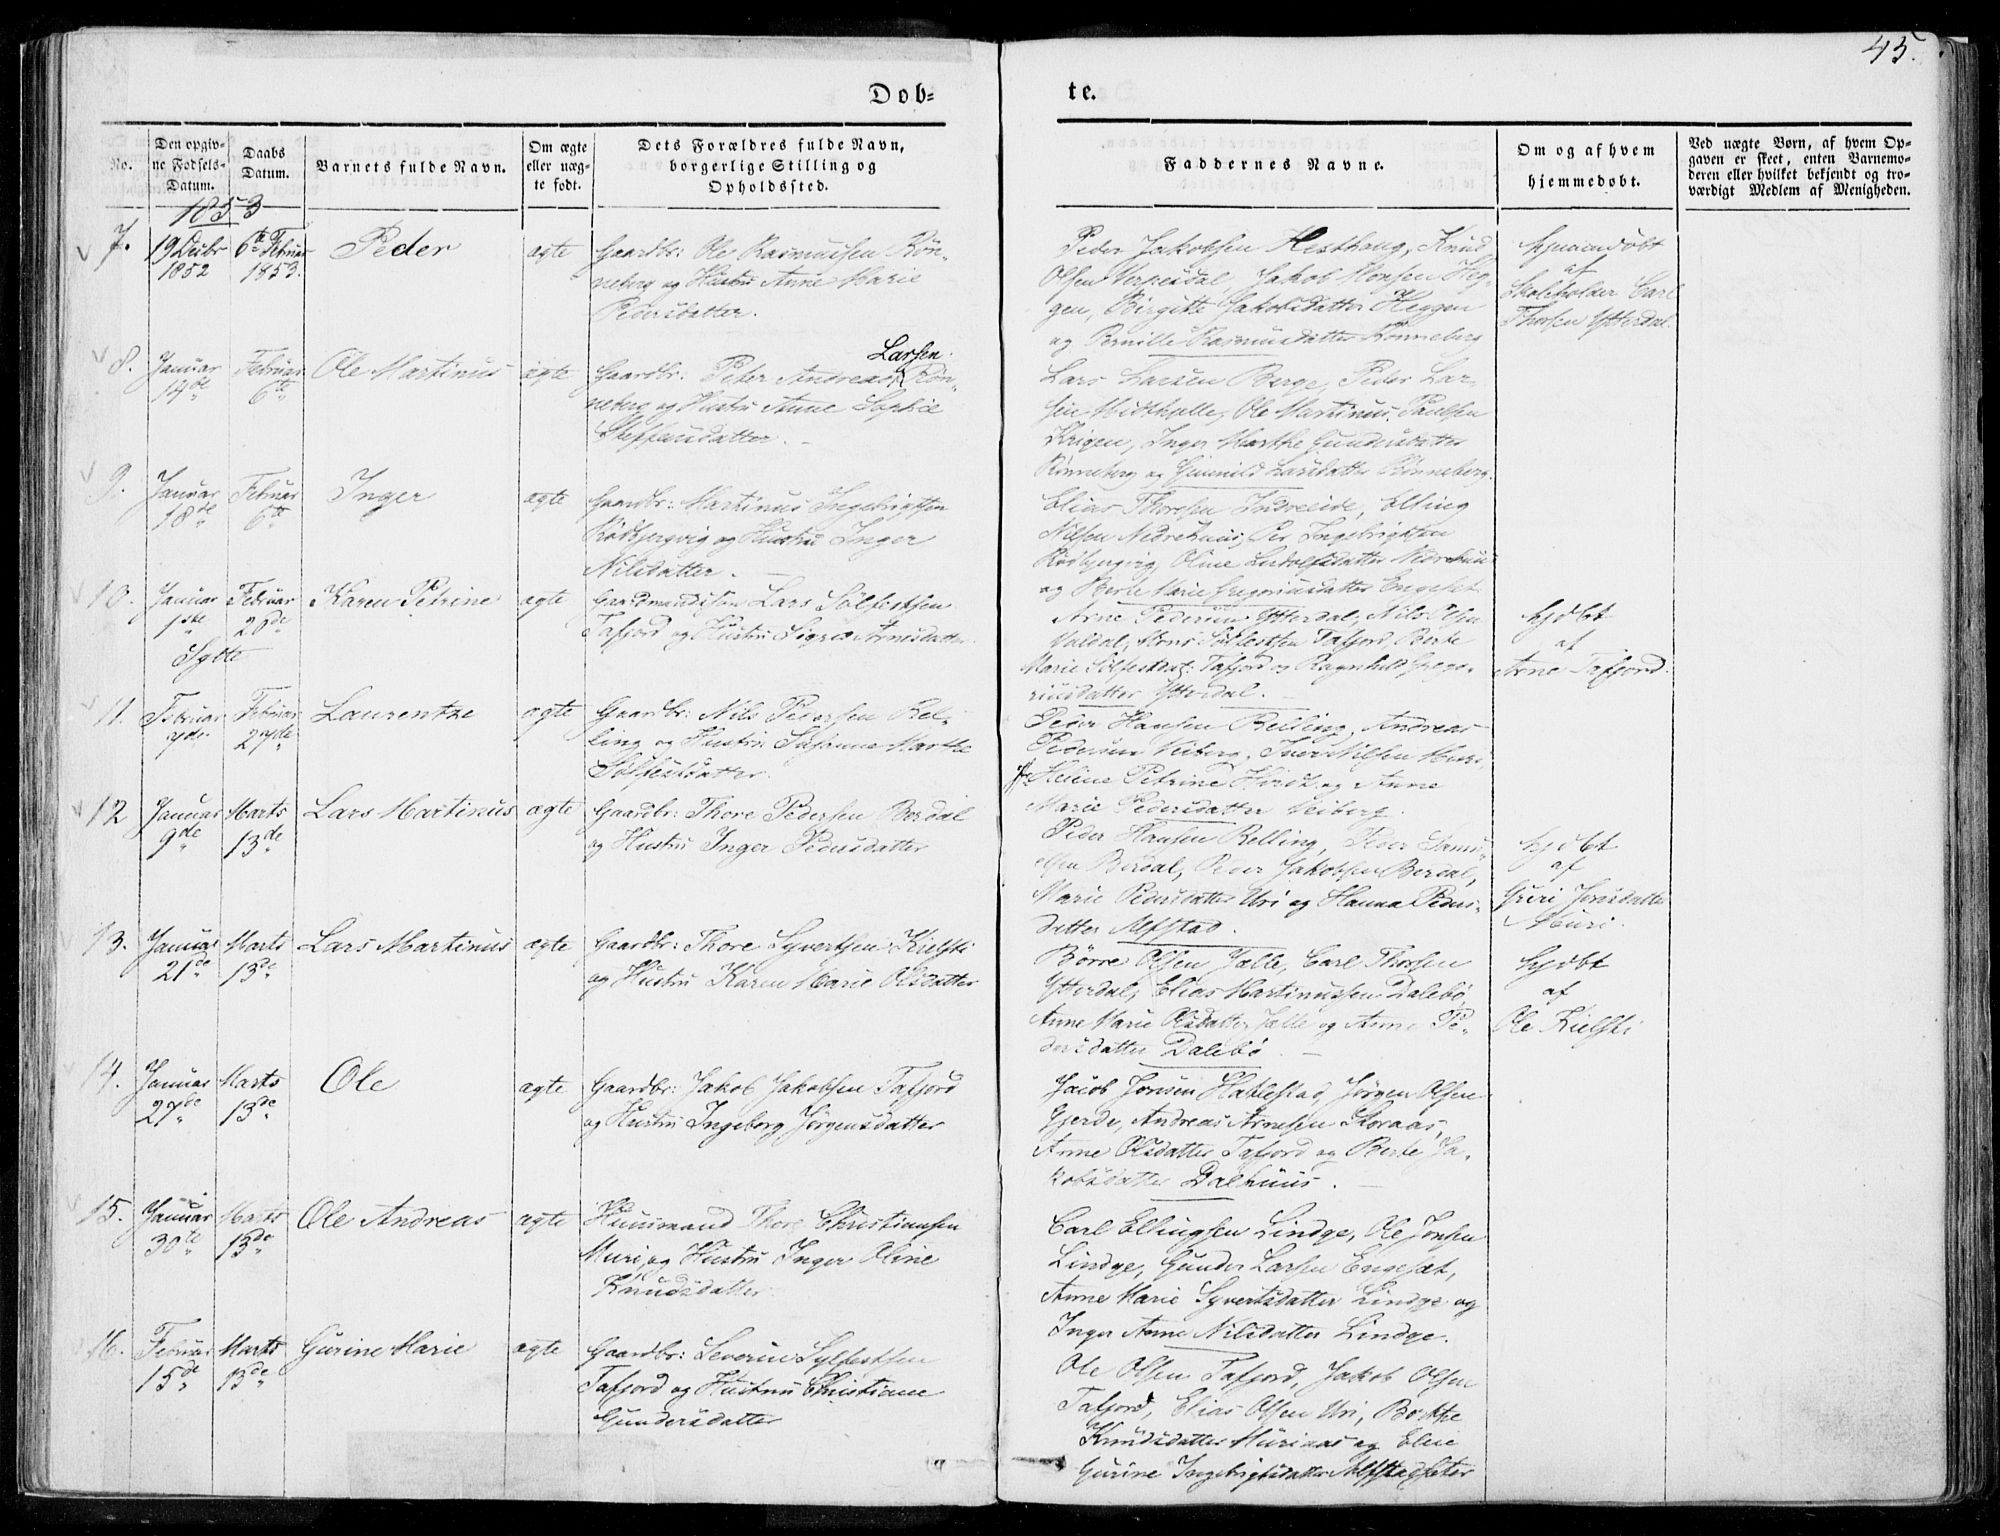 45.
Dob=
te.
No.
Den opgiv-
ne Fødsels-
Datum.
Daabs
Datum.
Barnets fulde Navn.
Om ægte
eller uæg-
te født.
Dets Forældres fulde Navn,
borgerlige Stilling og
Opholdssted.
Faddernes Navne.
Om og af hvem
hjemmedøbt.
Ved uægte Børn, af hvem Op-
gaven er skeet, enten Barnemo-
deren eller hvilket bekjendt og tro-
værdigt Medlem af Menigheden.
1853
7.
19 Decbr
1852
6te Februar
1853.
Peder
ægte
Gaardbr: Ole Rasmussen Røn-
neberg og Hustru Anne Marie
Pedersdatter.
Peder Jakobsen Hesthaug, Knud
Olsen Verpesdal, Jakob Monsen Heg-
gen, Birgitte Jakobsdatter Heggen
og Pernille Rasmusdatter Rønneberg
Hjemmedøbt
af
Skoleholder Carl
Thorsen Ytterdal.
8.
Januar
14de
Februar
6te
Ole Martinus
ægte
Larsen
Gaardbr: Peter Andreas Røn-
neberg og Hustru Anne Sophie
Steffensdatter.
Lars Larsen Berge, Peder Lar-
sen Midthulle, Ole Martinus Paulsen
Krigen, Inger Marthe Gundersdatter
Rønneberg og Gunnild Larsdatter Rønneberg.
9.
Januar
18de
Februar
6te
Inger
ægte
Gaardbr: Martinus Ingebrigtsen
Rødbjergvig og Hustru Inger
Nilsdatter.
Elias Thoresen Indreeide, Elling
Nilsen Nedrehuus, Per Ingebrigtsen
Rødbjergvig, Oline Ludolfsdatter Nedrehuus
og Berte Marie Gregoriusdatter Engeset
10.
Januar
1ste
Februar
20de
Sylte
Karen Petrine
ægte
Gaardmandssøn Lars Sølfestsen
Tafjord og Hustru Sigrid Arnesdatter
Arne Pedersen Ytterdal, Nils Olsen
Muldal, Arne Sølfestsen Tafjord, Berte
Marie Sølfestdat: Tafjord og Ragnhild Grego-
riusdatter Ytterdal.
hjdbt
af
Arne Tafjord.
11.
Februar
7de
Februar
27de
Laurentze
ægte
Gaardbr: Nils Pedersen Rel-
ling og Hustru Susanna Marthe
Sølfestdatter.
Peder Hansen Relling, Andreas
Pedersen Veiberg, Iver Nilsen Muri,
Helene Petrine Hardt og Anne
Marie Pedersdatter Veiberg.
12
Januar
9de
Marts
13de
Lars Martinus
ægte
Gaardbr: Thore Pedersen Berdal
og Hustru Inger Pedersdatter
Peder Hansen Relling, Peder Samu-
elsen Berdal, Peder Jakobsen Berdal,
Marie Pedersdatter Uri og Hanna Peders-
datter Alfstad.
hjdbt
af
Guri Jonsdatter
Muri.
13.
Januar
21de
Marts
13de
Lars Martinus
ægte
Gaardbr: Thore Syvertsen Kielsti
og Hustru Karen Marie Olsdatter
Børre Olsen Jælle, Carl Thorsen
Ytterdal, Elias Martinussen Dalebø,
Anne Marie Olsdatter Jælle og Anne Pe-
dersdatter Dalebø.
hjdbt
af
Ole Kielsti
14.
Januar
27de
Marts
13de
Ole
ægte
Gaardbr: Jakob Jakobsen Tafjord
og Hustru Ingeborg Jørgensdatter
Jacob Jonsen Hatlestad, Jørgen Olsen
Gjerde, Andreas Arnesen Storaas,
Anne Olsdatter Tafjord og Berte Ja-
kobsdatter Dalhuus.
15.
Januar
30te
Marts
13de
Ole Andreas
ægte
Huusmand Thore Christiansen
Muri, og Hustru Inger Oline
Knudsdatter
Carl Ellingsen Lindge, Ole Jonsen
Lindge, Gunder Larsen Engeset,
Anne Marie Syvertsdatter Lindge og
Inger Anne Nilsdatter Lindge.
16.
Februar
15de
Marts
13de
Gurine Marie
ægte
Gaardbr: Severin Sylfestsen
Tafjord og Hustru Christiane
Gundersdatter
Ole Olsen Tafjord, Jakob Olsen
Tafjord, Elias Olsen Uri, Berthe
Knudsdatter Muriaas og Elen
Gurine Ingebrigtsdatter Alfstadsæter